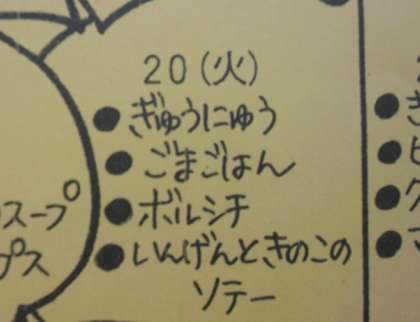 20(火)
●ぎゅうにゅう
●ごまごはん
●ボルシチ
●いんげんときのこの
ソテー
スープ
プス